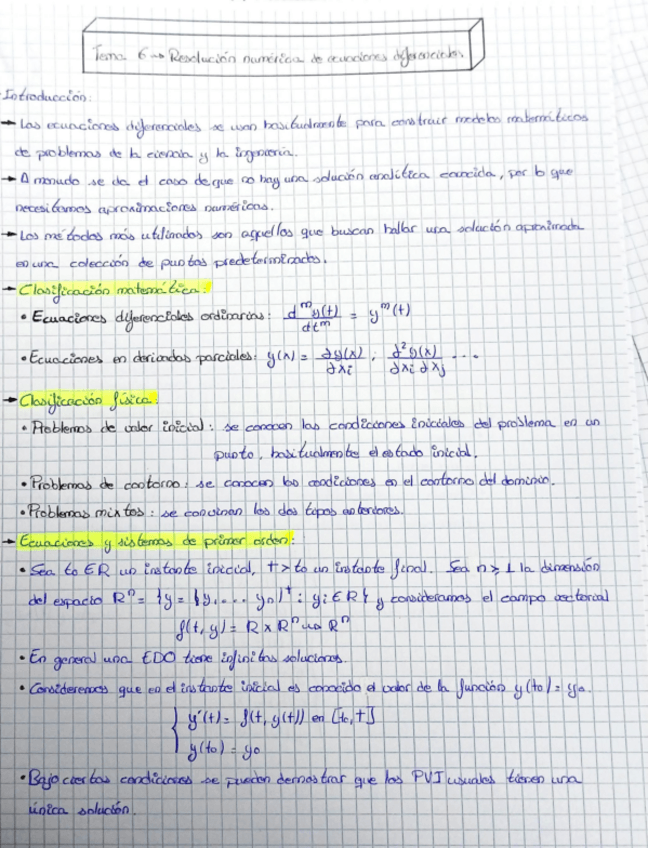 Tema 6 → Resolución numérica de ecuaciones diferenciales.
Introducción:
→ Las ecuaciones diferenciales se usan habitualmente para construir modelos matemáticos
de problemas de la ciencia y la ingeniería.
→ A menudo se da el caso de que no hay una solución analítica conocida, por lo que
necesitamos aproximaciones numéricas.
→ Los métodos más utilizados son aquellos que buscan hallar una solución aproximada
en una colección de puntos predeterminados.
→ Clasificación matemática:
• Ecuaciones diferenciales ordinarias: d^m y(t) / dt^m = y^m (t)
• Ecuaciones en derivadas parciales: y(x) = ∂y(x) / ∂xi , ∂²y(x) / ∂xi ∂xj ...
→ Clasificación física:
• Problemas de valor inicial: se conocen las condiciones iniciales del problema en un
punto, habitualmente el estado inicial.
• Problemas de contorno: se conocen las condiciones en el contorno del dominio.
• Problemas mixtos: se convinan los dos tipos anteriores.
→ Ecuaciones y sistemas de primer orden:
• Sea to ∈ R un instante inicial, t > to un instante final. Sea n ≥ 1 la dimensión
del espacio R^n = {y = {y, ... yn)^t : yi ∈ R} y consideramos el campo vectorial
f(t, y) = R x R^n → R^n
• En general una EDO tiene infinitas soluciones.
• Consideremos que en el instante inicial es conocido el valor de la función y(to) = yo.
{ y'(t) = f(t, y(t)) en [to, t]
y(to) = yo
• Bajo ciertas condiciones se pueden demostrar que los PVI usuales tienen una
única solución.